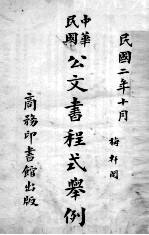 民國二年十月
梅軒閱
中華民國
公文書程式舉例
商務印書館出版